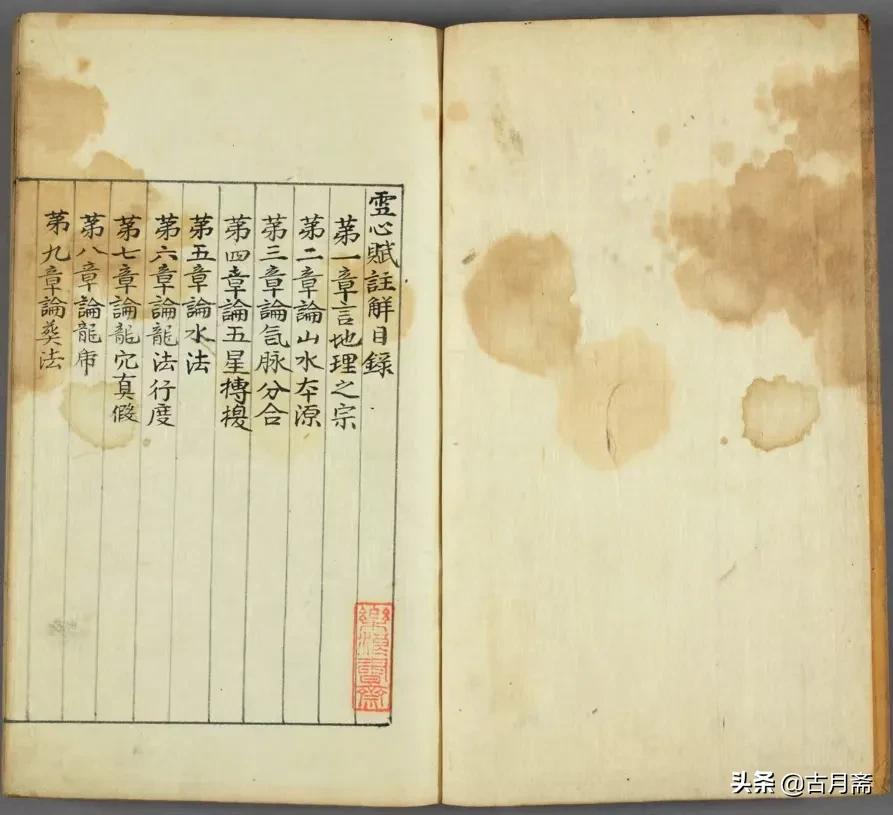 雪心賦註解目錄
苐一章言地理之宗
苐二章論山水夲源
苐三章論氣脉分合
苐四章論五星
苐五章論水法
苐六章論龍法行度
苐七章論龍穴真假
苐八章論龍虎
苐九章論葬法
头条 @古月斋